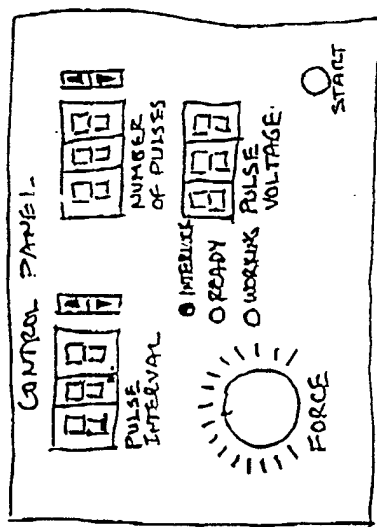 CONTROL PANEL
PULSE
INTERVAL
NUMBER
OF PULSES
INTERLOCK
READY
WORKING
PULSE
VOLTAGE
FORCE
START